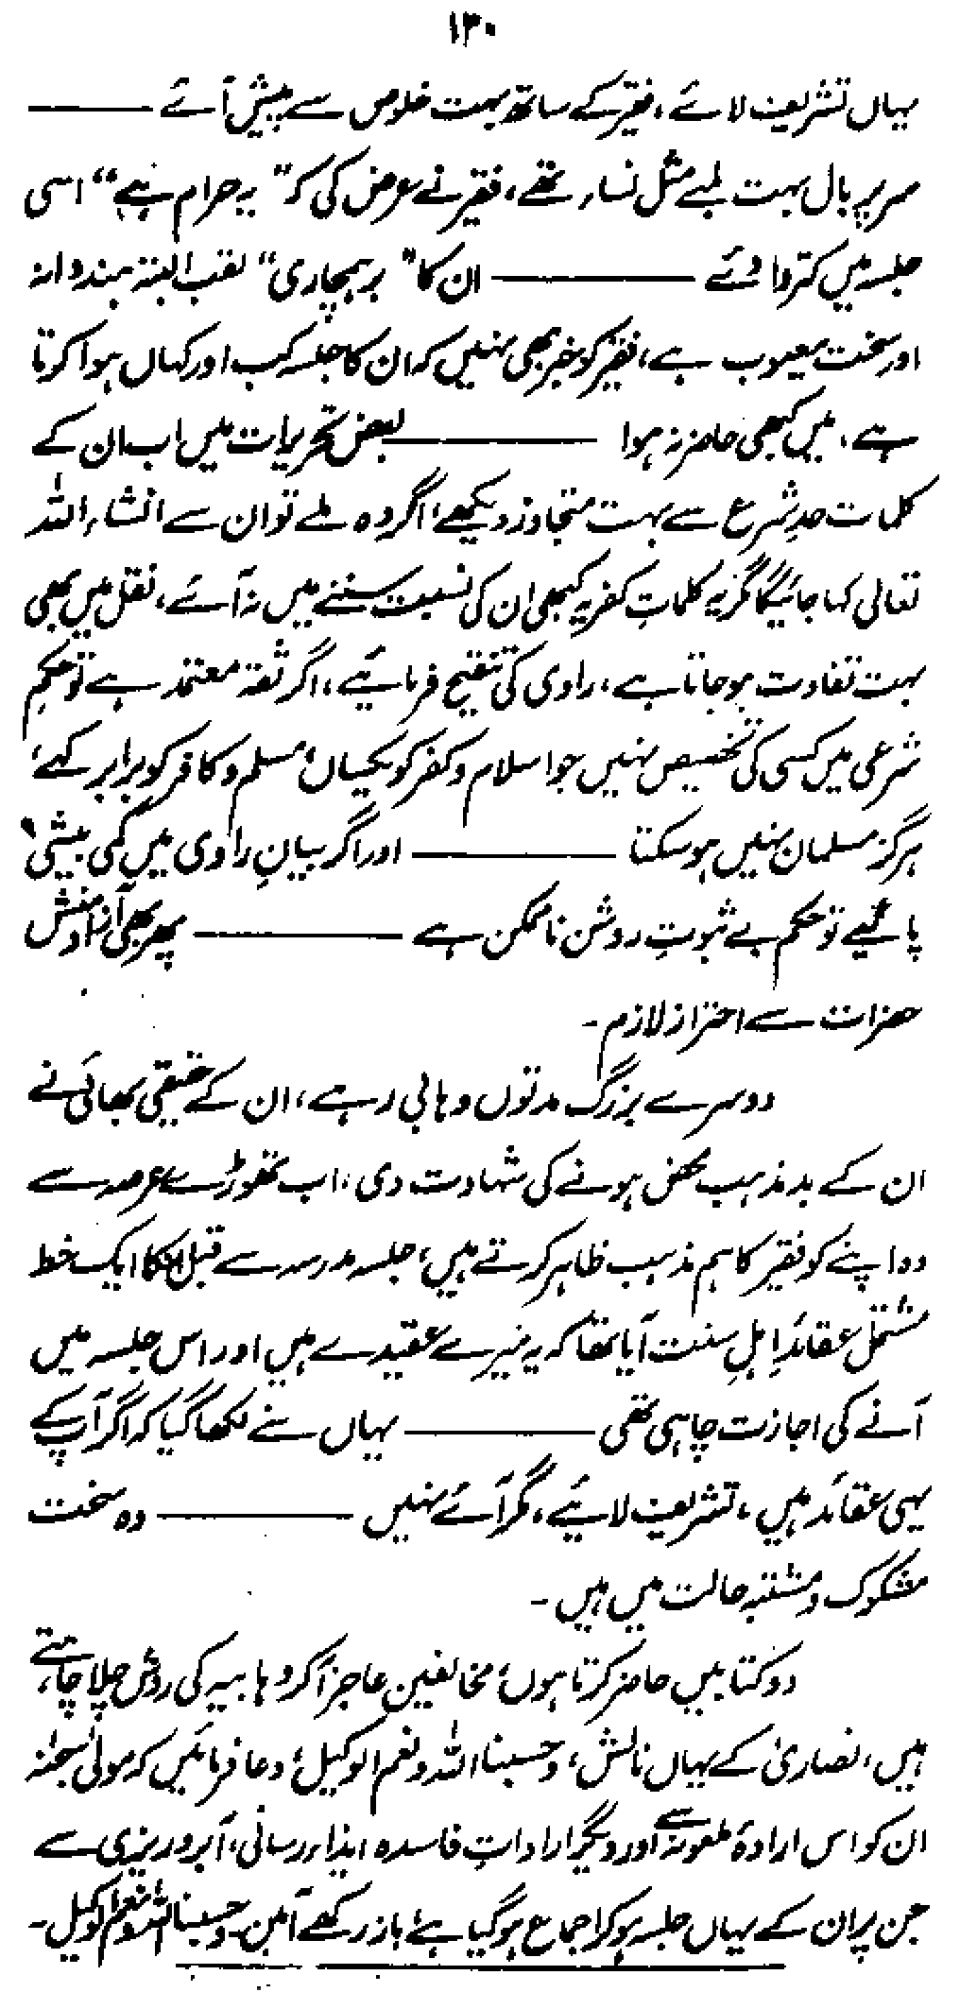 ۱۳۰
یہاں تشریف لائے، فقیر کے ساتھ بہت خلوص سے پیش آئے ———
سر پر بال بہت لمبے مثل نساء تھے، فقیر نے عرض کی کہ "یہ حرام ہے" اسی
جلسہ میں کتروا دئے ——— ان کا "برہمچاری" لقب البتہ ہندوانہ
اور سخت معیوب ہے، فقیر کو خبر بھی نہیں کہ ان کا جلسہ کب اور کہاں ہوا کرتا
ہے، میں کبھی حاضر نہ ہوا ——— بعض تحریرات میں اب ان کے
کلمات حدِ شرع سے بہت متجاوز دیکھے، اگر وہ ملے تو ان سے انشاء اللہ
تعالی کہا جائیگا مگر یہ کلماتِ کفریہ کبھی ان کی نسبت سننے میں نہ آئے، نقل میں بھی
بہت تفاوت ہو جاتا ہے، راوی کی تنقیح فرمائیے، اگر ثقہ معتمد ہے تو حکمِ
شرعی میں کسی کی تخصیص نہیں جو اسلام و کفر کو یکساں، مسلم و کافر کو برابر کہے،
ہرگز مسلمان نہیں ہو سکتا ——— اور اگر بیانِ راوی میں کمی بیشی
پائیے تو حکم بے ثبوتِ روشن ناممکن ہے ——— پھر بھی آزاد منش
حضرات سے احتراز لازم۔
دوسرے بزرگ مدتوں وہابی رہے، ان کے حقیقی بھائی نے
ان کے بدمذہب محض ہونے کی شہادت دی، اب تھوڑے عرصہ سے
وہ اپنے کو فقیر کا ہم مذہب ظاہر کرتے ہیں، جلسہ مدرسہ سے قبل انکا ایک خط
مشتمل عقائدِ اہلِ سنت آیا تھا کہ یہ میرے عقیدے ہیں اور اس جلسہ میں
آنے کی اجازت چاہی تھی ——— یہاں سے لکھا گیا کہ اگر آپ کے
یہی عقائد ہیں، تشریف لائیے، مگر آئے نہیں ——— وہ سخت
مشکوک و مشتبہ حالت میں ہیں۔
دو کتابیں حاضر کرتا ہوں، مخالفین عاجز آکر وہابیہ کی روش چلا چاہتے
ہیں، نصاریٰ کے یہاں نالش، وحسبنا اللہ ونعم الوکیل، دعا فرمائیں کہ مولیٰ سبحٰنہ
ان کو اس ارادۂ ملعونہ سے اور دیگر اراداتِ فاسدہ ایذاء رسانی، آبرو ریزی سے
جن پر ان کے یہاں جلسہ ہو کر اجماع ہو گیا ہے، باز رکھے آمین۔ وحسبنا اللہ ونعم الوکیل۔